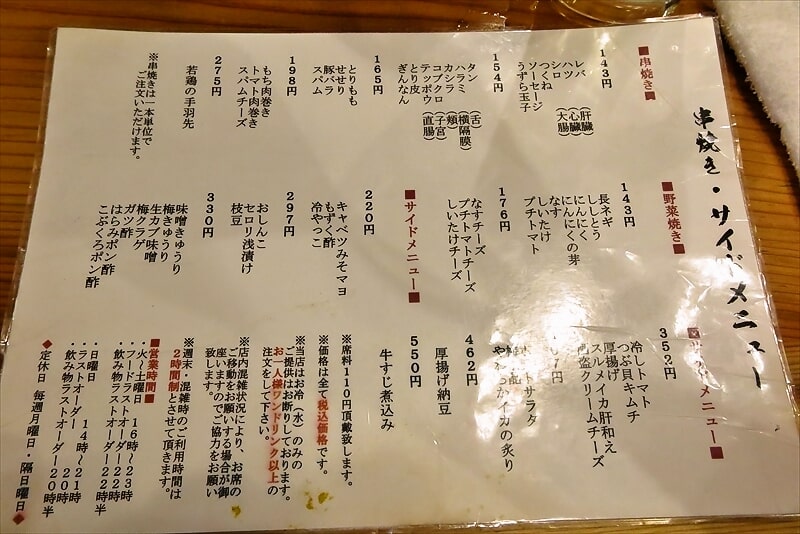 串焼き・サイドメニュー
■串焼き■
143円
レバ (肝臓)
ハツ (心臓)
シロ (大腸)
つくね
ソーセージ
うずら玉子
154円
タン (舌)
ハラミ (横隔膜)
カシラ (頬)
コブクロ (子宮)
テッポウ (直腸)
とり皮
ぎんなん
165円
とりもも
せせり
豚バラ
スパム
198円
もち肉巻き
トマト肉巻き
スパムチーズ
275円
若鶏の手羽先
※串焼きは一本単位で
ご注文いただけます。
■野菜焼き■
143円
長ネギ
ししとう
にんにく
にんにくの芽
なす
しいたけ
プチトマト
176円
なすチーズ
プチトマトチーズ
しいたけチーズ
■サイドメニュー■
220円
キャベツみそマヨ
もずく酢
冷やっこ
297円
おしんこ
セロリ浅漬け
枝豆
330円
味噌きゅうり
梅きゅうり
生カブ味噌
梅クラゲ
ガツ酢
はらみポン酢
こぶくろポン酢
サイドメニュー■
352円
冷しトマト
つぶ貝キムチ
厚揚げ
スルメイカ肝和え
酒盗クリームチーズ
7円
トサラダ
やわらかイカの炙り
462円
厚揚げ納豆
550円
牛すじ煮込み
※席料110円頂戴致します。
※価格は全て税込価格です。
※当店はお冷(水)のみの
ご提供はお断りしております。
お1人様ワンドリンク以上の
注文をして下さい。
※店内混雑状況により、お席の
ご移動をお願いする場合が御
座いますのでご協力をお願い
致します。
※週末・混雑時のご利用時間は
2時間制とさせて頂きます。
■営業時間■
火〜土曜日 16時〜23時
・フードラストオーダー22時
・飲み物ラストオーダー22時半
・日曜日 14時〜21時
・ラストオーダー 20時
・飲み物ラストオーダー20時半
◆定休日 毎週月曜日・隔日曜日◆